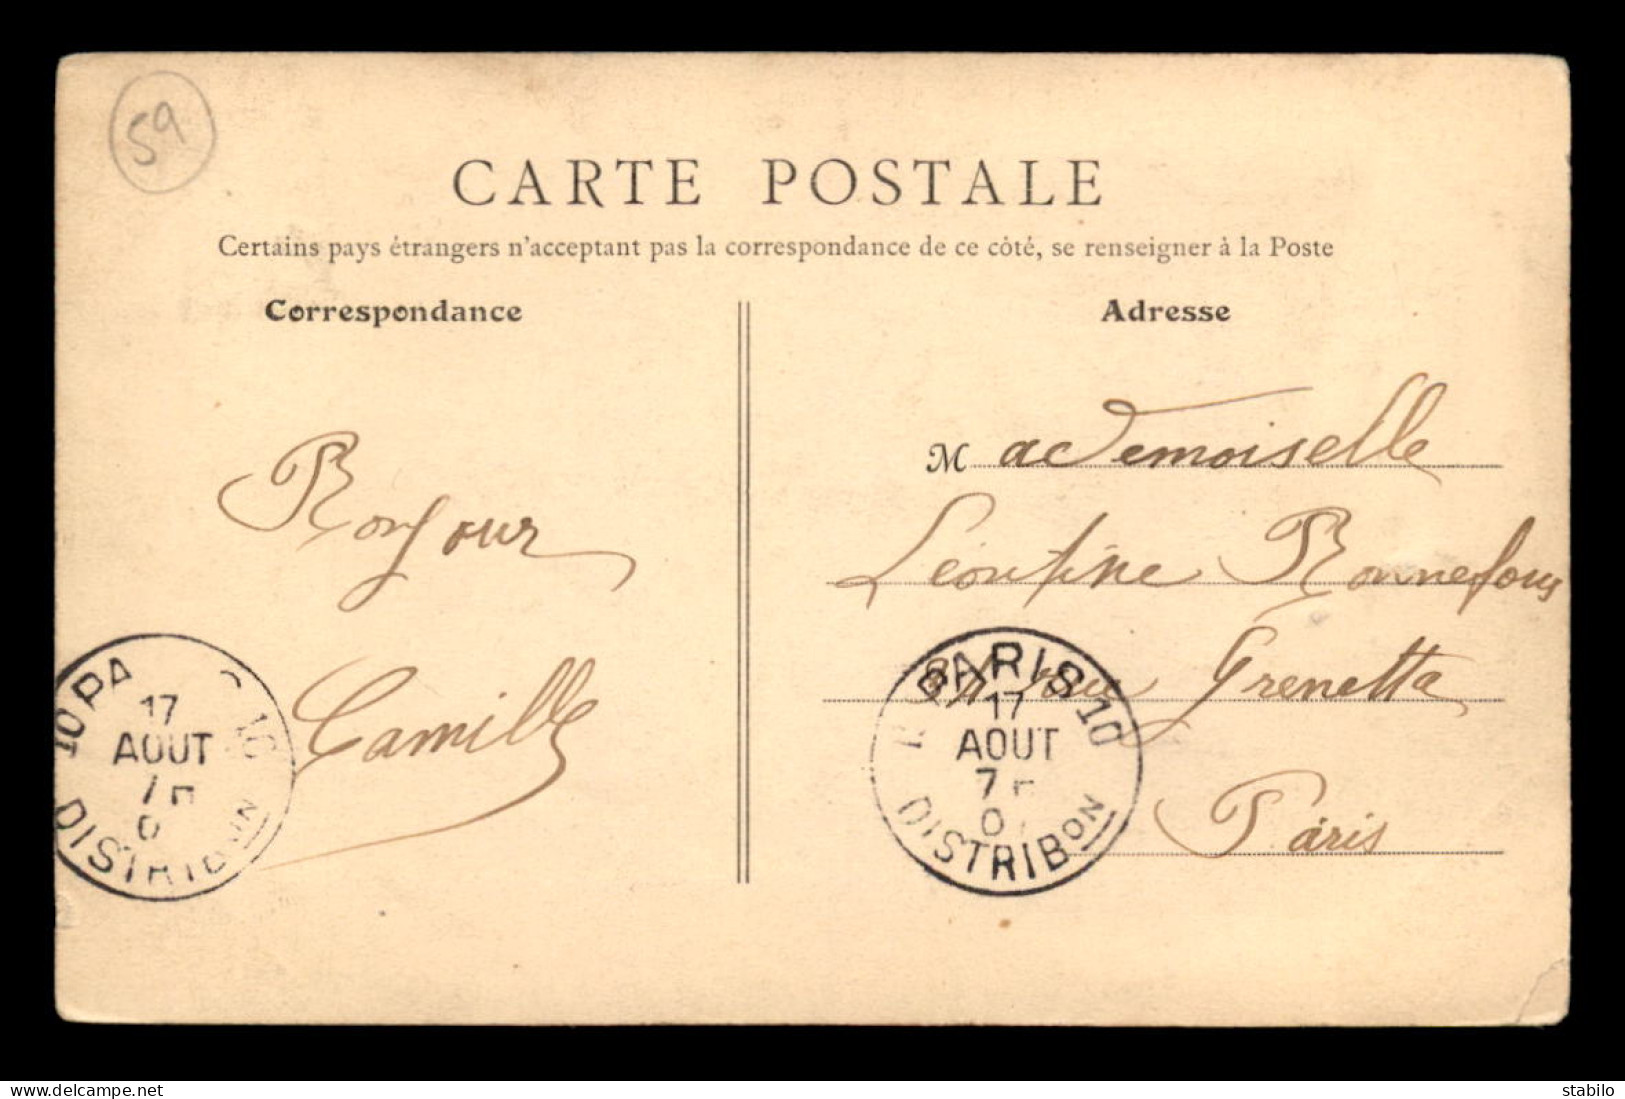 59
CARTE POSTALE
Certains pays étrangers n'acceptant pas la correspondance de ce côté, se renseigner à la Poste
Correspondance
Bonjour
Camille
Adresse
Mademoiselle
Léontine Bonnefous
rue Grenetta
Paris
10 PA
17
AOUT
DISTRIBON
PARIS 10
17
AOUT
7
0
DISTRIBON
www.delcampe.net
stabilo